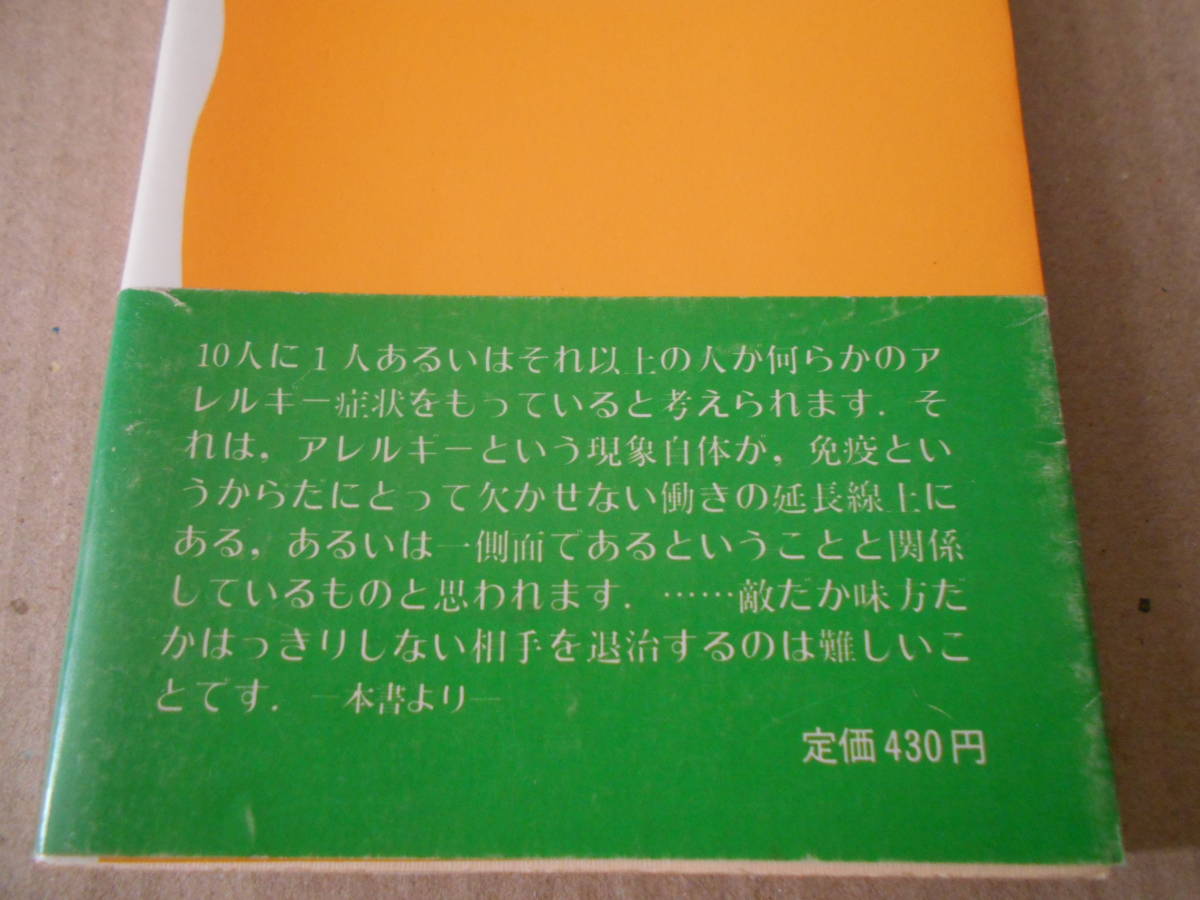 10人に1人あるいはそれ以上の人が何らかのア
レルギー症状をもっていると考えられます．そ
れは，アレルギーという現象自体が，免疫とい
うからだにとって欠かせない働きの延長線上に
ある，あるいは一側面であるということと関係
しているものと思われます．……敵だか味方だ
かはっきりしない相手を退治するのは難しいこ
とです．―本書より―
定価430円